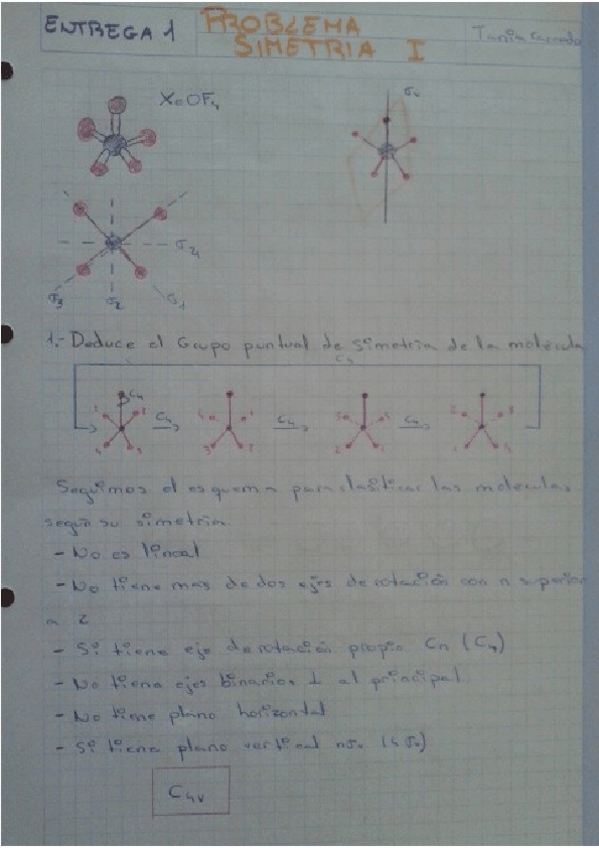 ENTREGA 1
PROBLEMA
SIMETRIA I
Tania
XeOF4
σv
σ4
σ3 σ2 σ1
1.- Deduce el Grupo puntual de simetria de la molécula
C4
C4 C4 C4
Seguimos el esquema para clasificar las moléculas
según su simetría
- No es lineal
- No tiene mas de dos ejes de rotación con n superior
a 2
- Si tiene eje de rotación propio Cn (C4)
- No tiene ejes binarios ⊥ al principal
- No tiene plano horizontal
- Si tiene plano vertical nσv (4 σv)
C4v